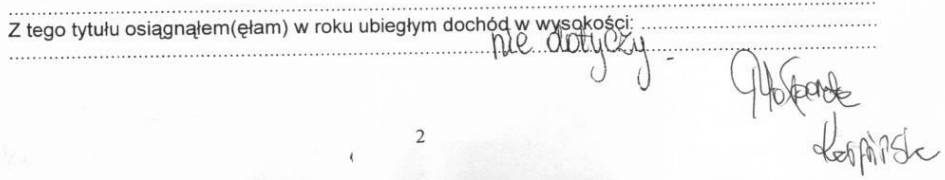 Z tego tytułu osiągnąłem(ęłam) w roku ubiegłym dochód w wysokości:
nie dotyczy
2